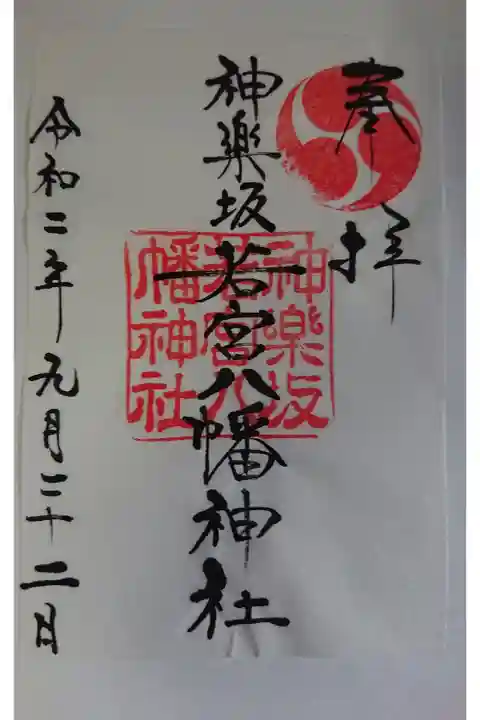 奉拝
神楽坂若宮八幡神社
神楽坂
若宮八
幡神社
令和二年九月二十二日